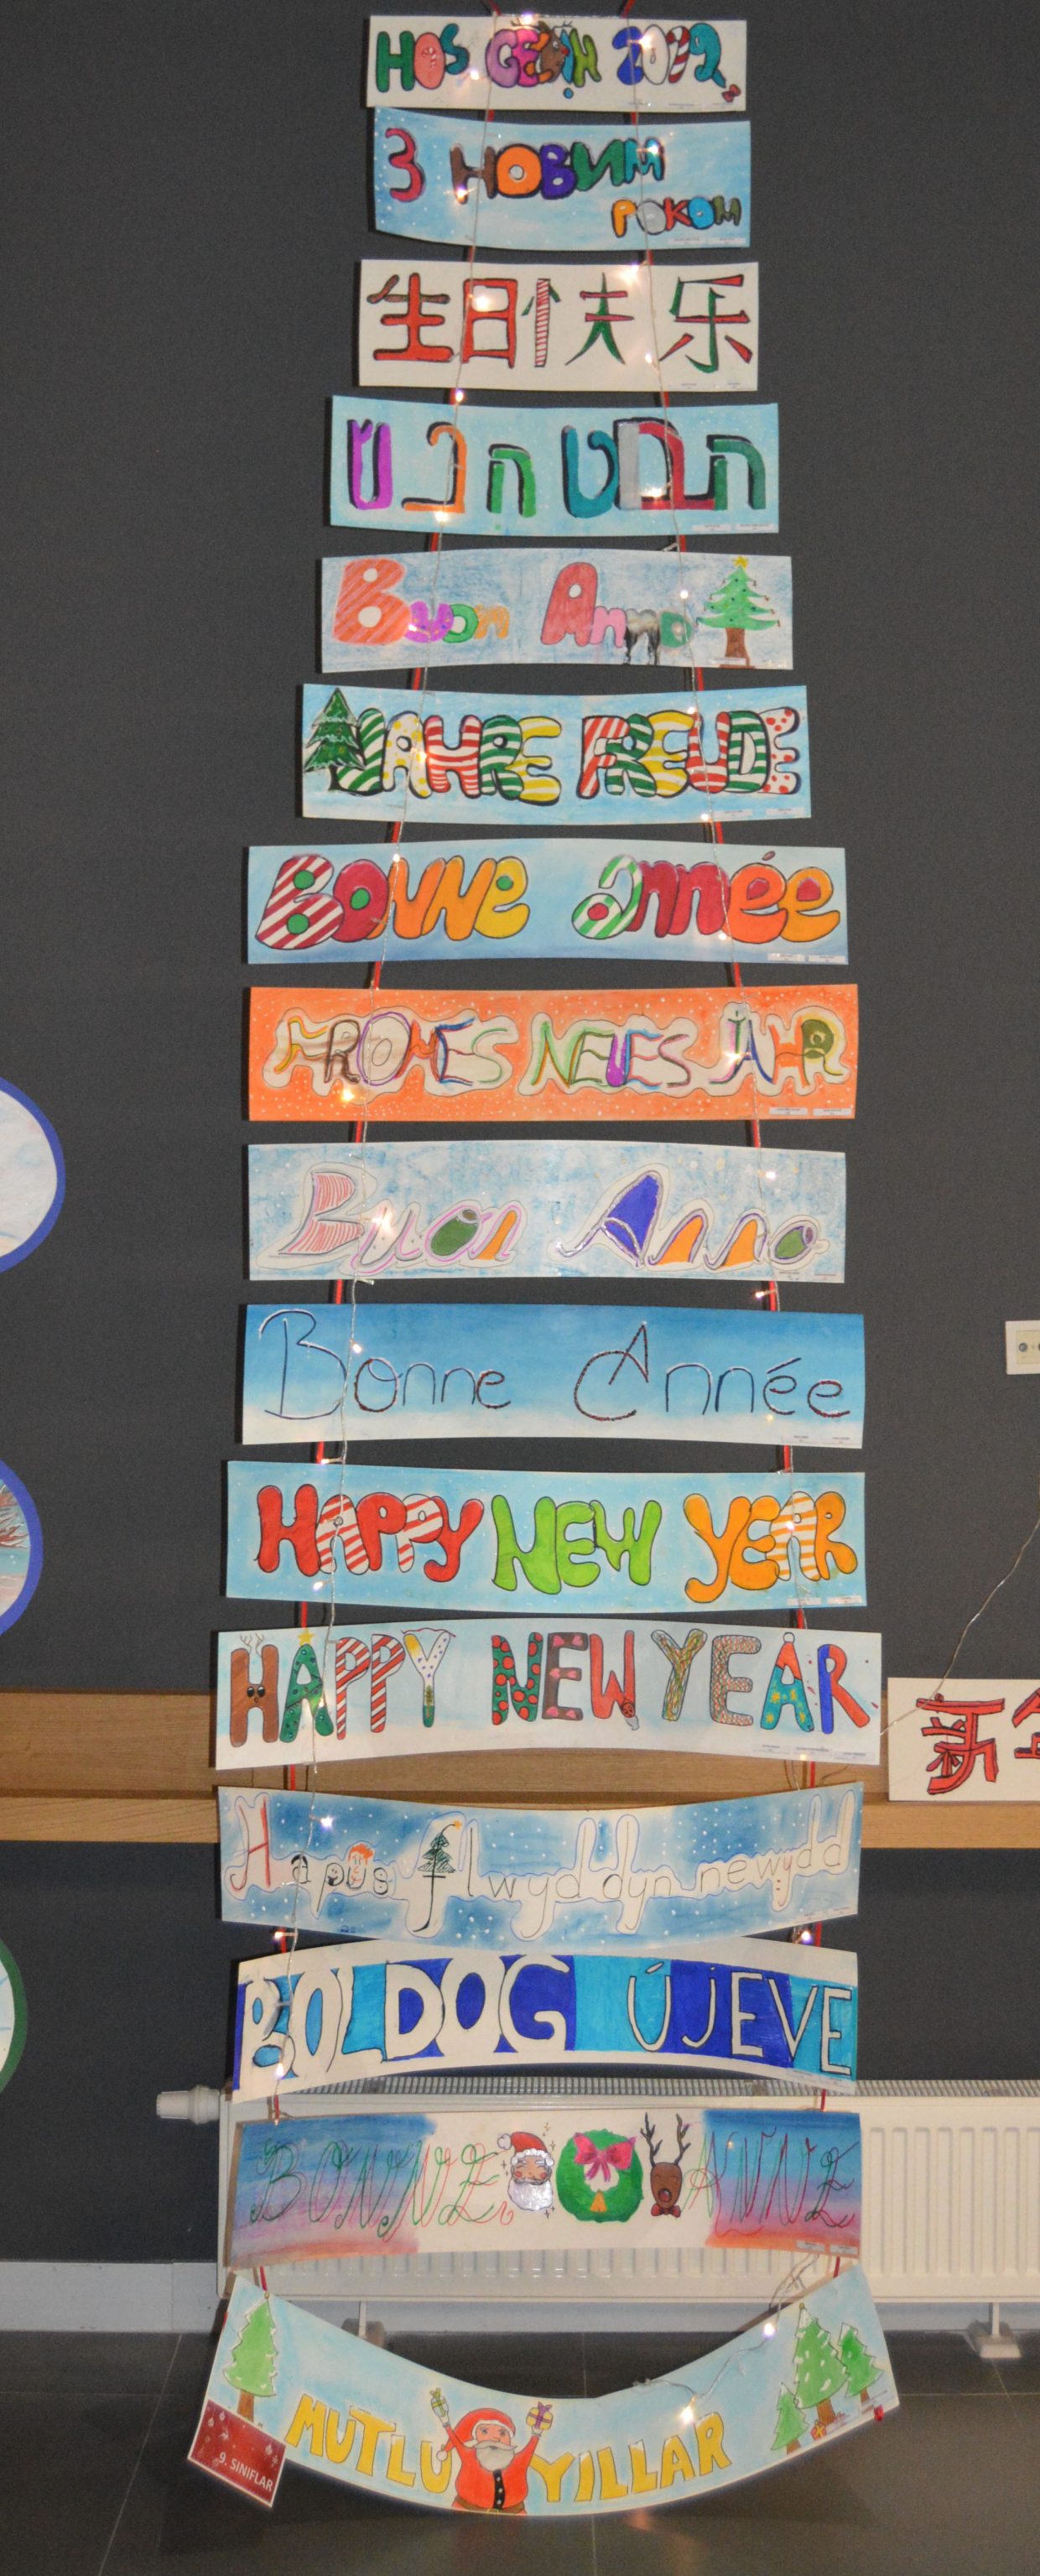 HOS GELDİN 2019
З НОВИМ
РОКОМ
生日快乐
Buon Anno
JAHRE FREUDE
Bonne année
FROHES NEUES JAHR
Buon Anno
Bonne Année
HAPPY NEW YEAR
HAPPY NEW YEAR
新
Hapus flwyddyn newydd
BOLDOG ÚJEVE
BONNE ANNE
MUTLU YILLAR
9. SINIFLAR